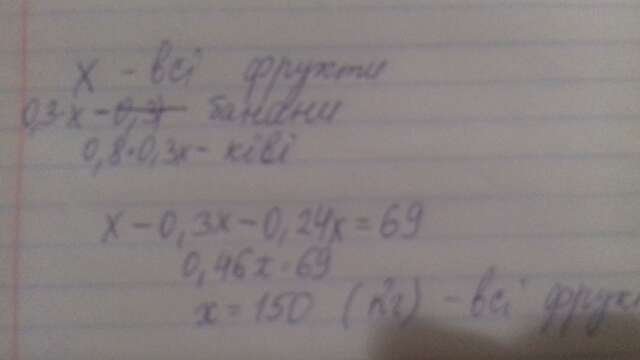 x - всі фрукти
0,3·x - банани
0,8·0,3x - ківі
x - 0,3x - 0,24x = 69
0,46x = 69
x = 150 (кг) - всі